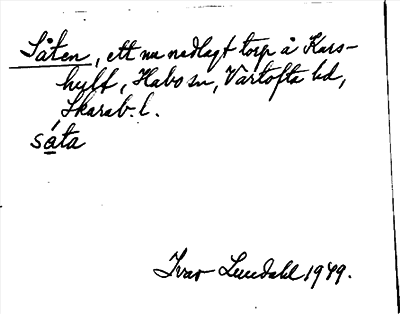 Såten, ett nu nedlagt torp å Kars-
hult, Habo sn, Vartofta hd,
Skarab. l.
såta
Ivar Lundahl 1949.